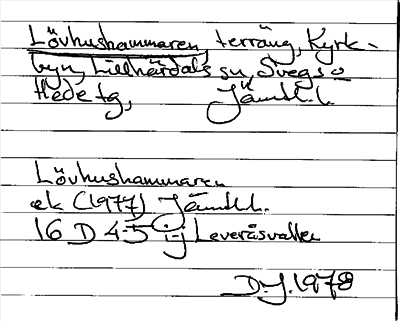 Lövhushammaren, terräng, Kyrk-
byn, Lillhärdals sn, Svegs o
Hede tg, Jämtl. l.
Lövhushammaren
ek (1977) Jämtl l.
16 D 4-5 i-j Leveråsvallen
D.J. 1978